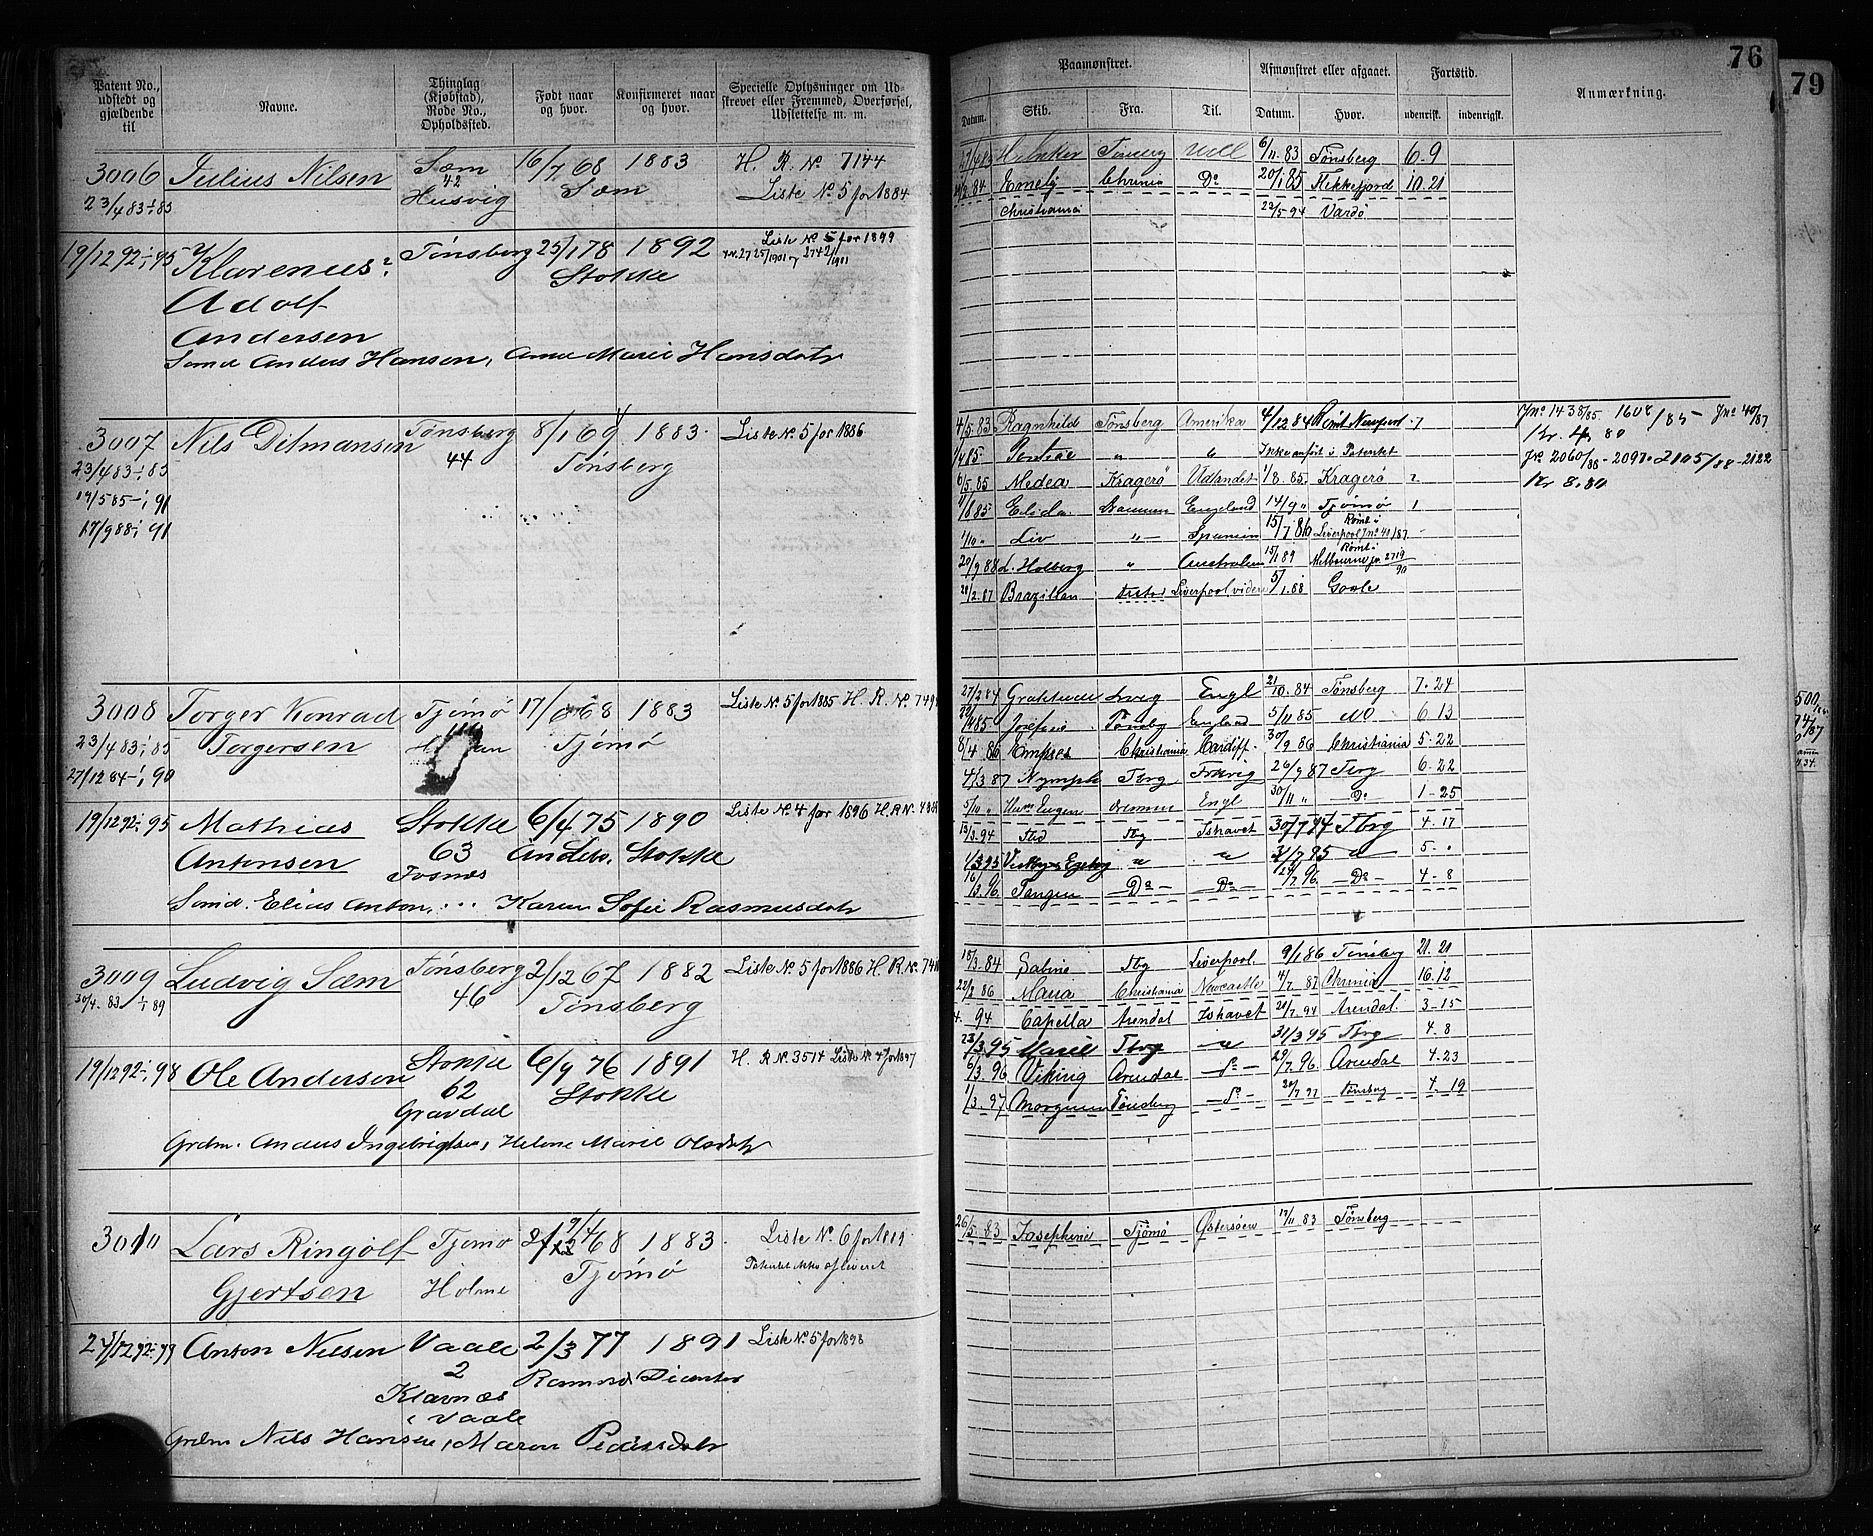 76
79
Patent No., udstedt og gjældende til
Navne.
Thinglag (Kjøbstad), Rode No., Opholdssted.
Født naar og hvor.
Konfirmeret naar og hvor.
Specielle Oplysninger om Udstrevet eller Fremmed, Overførsel, Udslettelse m. m.
Paamønstret.
Afmønstret eller afgaaet.
Fartstid.
Anmærkning.
Datum.
Skib.
Fra.
Til.
Datum.
Hvor.
udenrigsk.
indenrigsk.
3006 Julius Nilsen Sæm 16/7 68 1883 H. R. No 7144
23/4 83 - 1/1 85 42 Husvig Sæm Liste No. 5 for 1884
6/11 83 Tønsberg 6.9
84 Emely Chrania Do 20/1 85 Flekkefjord 10.21
Christiania 22/5 94 Vardö
19/12 92 - 1/1 95 Klarenius Tønsberg 25/1 78 1892 Liste No 5 for 1899
Adolf Stokke
Andersen
Sømd Anders Hansen, Anne Marie Hansdatr
3007 Nils Ditmansen Tönsberg 8/1 69 1883. Liste No. 5 for 1886
23/4 83 - 1/1 85 44 Tønsberg
19/5 85 - 1/1 91
17/9 88 - 1/1 91
4/5 83 Ragnhild Tønsberg Amerika 4/12 84 Rømt Newport
Ikke anført i Patentet
6/5 85 Medea Kragerø Udlandet 1/8 85. Kragerø 2
Elida Engeland 14/9 " Tjømø 1
1/10 " Liv " Spanien 15/7 86 Rømt i Liverpool Jno 40/87
20/9 88 L. Holberg " Australien 15/1 89 Rømt i Melbourne jr. 2719/90
2/2.87 Brazilian Liverpool videre 5/1.88 Goole
Jno 1438/85 1608/85 Jno 40/87
1 kr. 80
Jno 2060/88 - 2097 - 2105/88 - 2122
Kr 8.80
3008 Torger Konrad Tjömö 17/6 68 1883 Liste No. 5 for 1885 H. R. No. 749
23/4 83 - 1/1 85 Torgersen Tjömö
27/12 84 - 1/1 90
27/2 84 Gratitude Lvig Engl 21/10.84 Tønsberg 7.24
Josefine Tønsbg England 5/11 85 do 6.13
8/4 86 Empres Christiania Cardiff. 30/9 86 Christiania 5.22
4/3 87 Nymph Tbrg Frdvig 26/9 87 Tbrg 6.22
5/10 " Eugen drammen Engl 30/11 " Do 1-25
19/12 92 - 1/1 95 Mathias Stokke 6/4 75 1890 Liste No. 4 for 1896 H.R.No.
Antonsen 63 Fosnæs Andebu, Stokke
Sømd. Elias Anton, ... Karen Sofie Rasmusdatr
13/3.94 Tbg Ishavet 30/7 94 Tbrg 4-17
1/3 95 " " 31/7 95 " 5-"
16/3.96 Tangen Do Do 29/7.96 Do 4-8
3009 Ludvig Sæm Tönsberg 2/12 67 1882 Liste No. 5 for 1886 H. R. No.
30/4. 83 - 1/1 89 46 Tønsberg
15/3.84 Sabine Tbg Liverpool. 9/1 86 Tønsberg 21.21
22/2 86 Maria Christiania Newcastle 4/7 87 Chrania 16.12
19/12 92 - 1/1 98 Ole Andersen Stokke 6/9 76 1891 H. R No. 3514 Liste No. 4 for 1897
62 Gravdal Stokke
Grdm. Anders Ingebrigtsen, Helene Marie Olsdatr
94 Capella Arendal Ishavet 21/7.94 Arendal 3-15
23/3.95 Tbrg " 31/3 95 Tbrg 4.8
6/3.96 Viking Arendal Do 29/7.96 Arendal 4.23
1/3.97 Morgenen Tønsberg Do 20/7 97 Tønsberg 4.19
3010 Lars Ringolf Tjømø 9/4 68 1883. Liste No. 6 for 1889
Gjertsen Holme Tjömö Patentet ikke afleveret
26/5 83 Josephine Tjömö Østersøen 19/11 83 Tønsberg
27/12 92 - 1/1 99 Anton Nilsen Vaale 2/3 77 1891 Liste No. 5 for 1898
2 Klavnæs i Vaale Ramnæs
Grdm Nils Hansen, Maren Pedersdatr